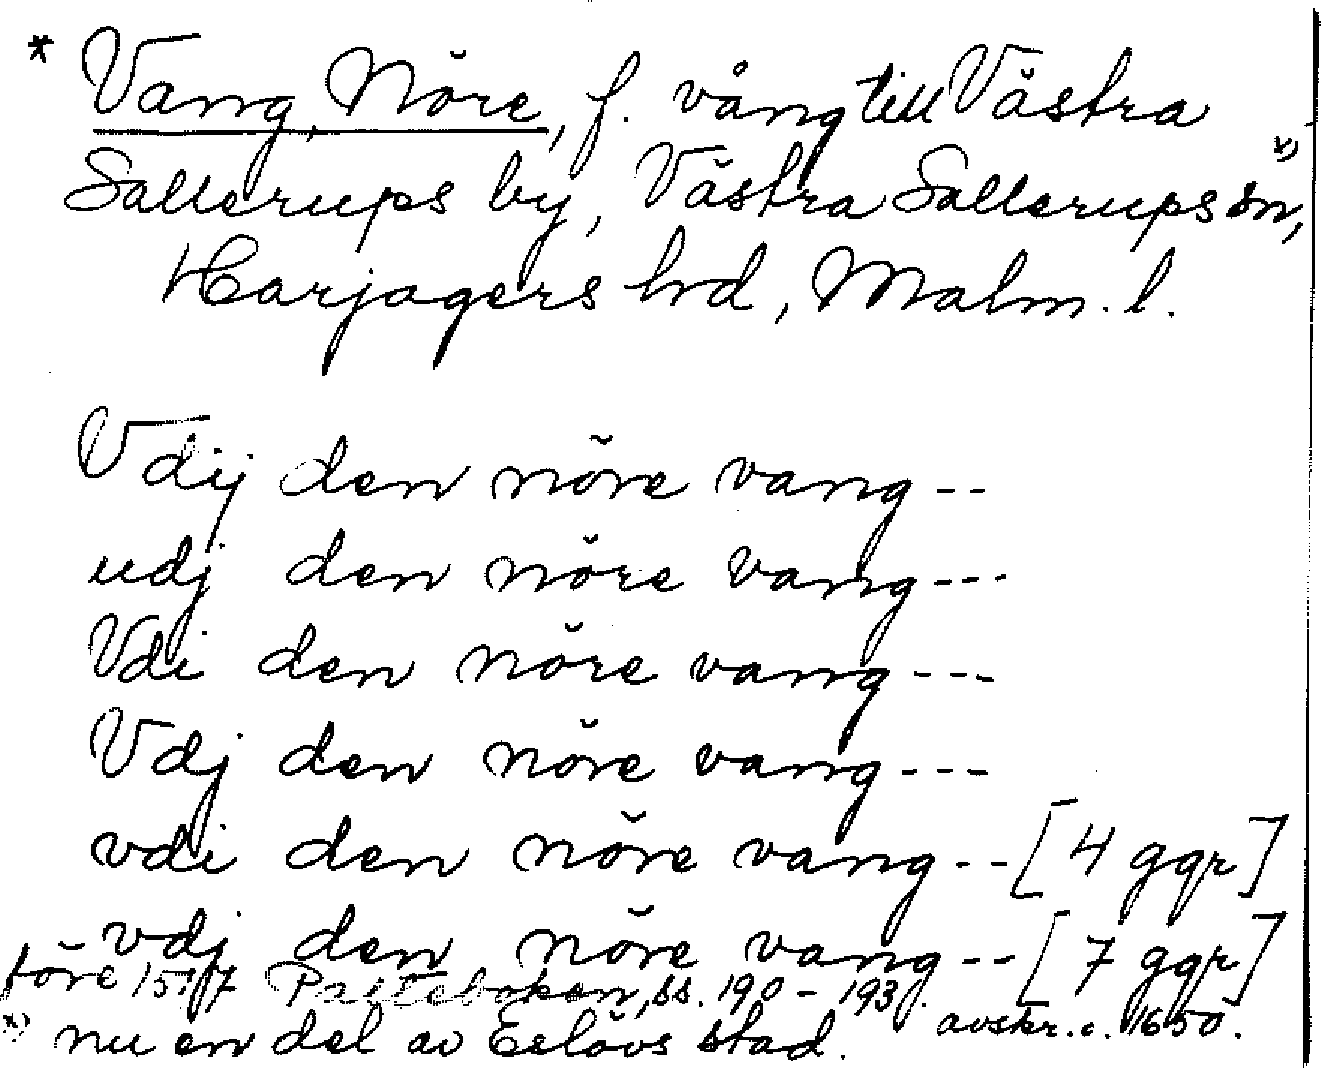 * Vang, Nöre, f. vång till Västra
Sallerups by, Västra Sallerups sn, x)
Harjagers hd, Malm. l.
Vdij den nöre vang --
udj den nöre vang ---
Vdi den nöre vang ---
Vdj den nöre vang ---
vdi den nöre vang -- [4 ggr]
vdj den nöre vang -- [7 ggr]
före 1517 Palteboken, ss. 190 - 193.
avskr. c. 1650.
x) nu en del av Eslövs stad.